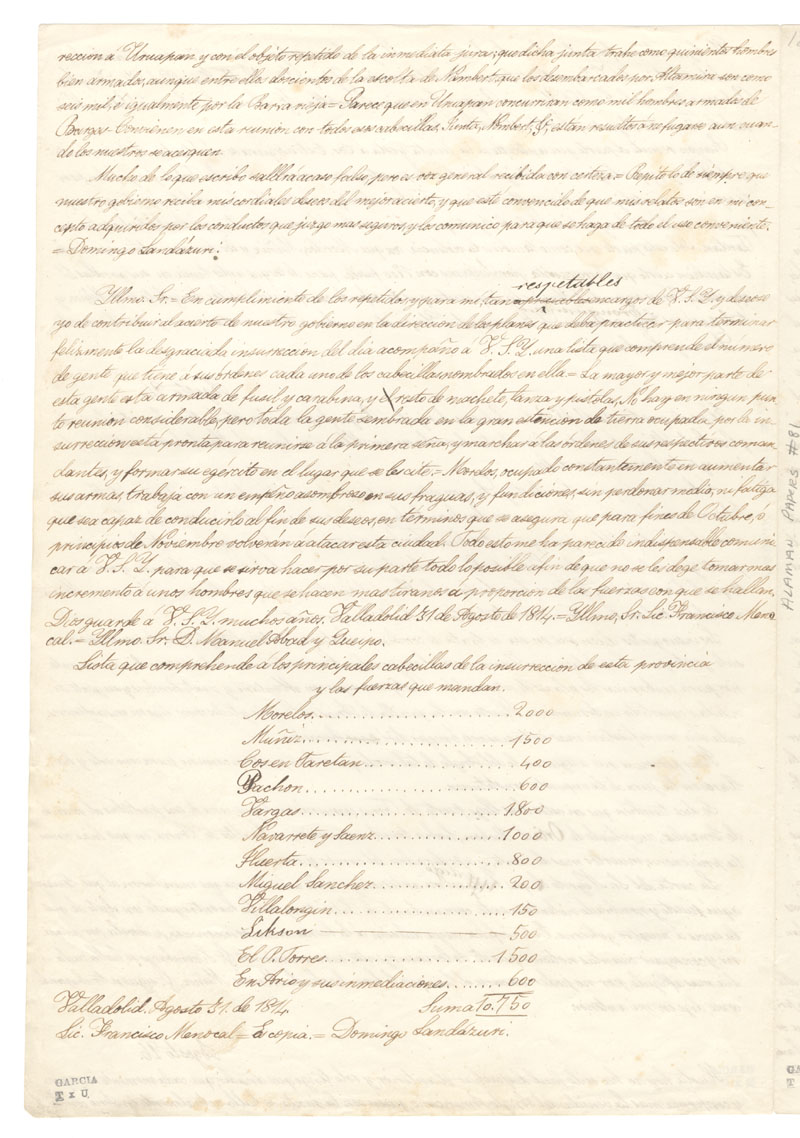 reccion á Uruapan y con el objeto repetido de la inmediata jura; que dicha junta trahe como quinientos hombres
bien armados, aunque entre ellos doscientos de la escolta de Nombert, que los desembarcados por Altamira son como
seis mil, é igualmente por la Barra vieja = Parece que en Uruapan concurriran como mil hombres armados de
Burgos. Convienen en esta reunion con todos esos cabecillas, Junta, Nombert, &, estan resueltos á no fugarse aun cuan-
do los nuestros se acerquen.
Mucho de lo que escribo saldrá acaso falso, pero es voz general recibida con certeza. = Repito lo de siempre que
nuestro gobierno reciba mis cordiales deseos del mejor acierto, y que esté convencido de que mis relatos son en mi con-
cepto adquiridos por los conductos que juzgo mas seguros, y los comunico para que se haga de todo el uso conveniente.
= Domingo Landázuri.
respetables
Yllmo. Sr. = En cumplimiento de los repetidos y para mi tan apreciables encargos de V.S.Y. y deseoso
yo de contribuir al acierto de nuestro gobierno en la direccion de los planes que deba practicar para terminar
felizmente la desgraciada insurreccion del dia acompaño á V.S.Y. una lista que comprende el número
de gente que tiene á sus órdenes cada uno de los cabecillas nombrados en ella = La mayor y mejor parte de
esta gente está armada de fusil y carabina, y el resto de machete, lanza y pistolas. No hay en ningun pun-
to reunion considerable, pero toda la gente sembrada en la gran estencion de tierra ocupada por la in-
surreccion está pronta para reunirse á la primera seña, y marchar á las órdenes de sus respectivos coman-
dantes, y formar su egército en el lugar que se les cite. = Morelos, ocupado constantemente en aumentar
sus armas, trabaja con un empeño asombroso en sus fraguas, y fundiciones, sin perdonar medio, ni fatiga
que sea capaz de conducirlo al fin de sus deseos, en términos que se asegura que para fines de Octubre, ó
principios de Noviembre volverán á atacar esta ciudad. Todo esto me ha parecido indispensable comuni-
car á V.S.Y. para que se sirva hacer por su parte todo lo posible á fin de que no se les deje tomar mas
incremento á unos hombres que se hacen mas tiranos á proporcion de las fuerzas con que se hallan.
Dios guarde á V.S.Y. muchos años. Valladolid 31 de Agosto de 1814. = Yllmo. Sr. Lic. Francisco Meno-
cal. = Yllmo. Sr. D. Manuel Abad y Queipo.
Lista que comprehende á los principales cabecillas de la insurreccion de esta provincia
y las fuerzas que mandan.
Morelos.......................... 2000
Muñiz.......................... 1500
Cos en Taretan.................. 400
Pachon.......................... 600
Vargas.......................... 1.800
Navarrete y Saenz.............. 1000
Huerta.......................... 800
Miguel Sanchez.................. 200
Villalongin..................... 150
Likson ——— 500
El P. Torres.................... 1500
En Ario y sus inmediaciones....... 600
Valladolid. Agosto 31. de 1814. Suma 10.750
Lic. Francisco Menocal = Es copia. = Domingo Landázuri.
GARCIA
T x U
ALAMAN PAPERS #81